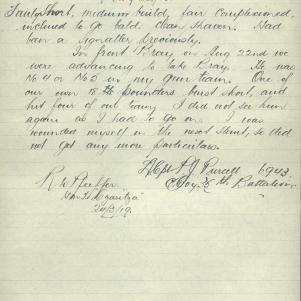 short, medium build, fair complexioned,
inclined to go bald, clean shaven. Had
been a signaller previously.
In front Bray on Aug 22nd we
were advancing to take Bray. He was
No 4 or No 5 in my gun team. One of
our own 18 pounders burst short, and
hit four of our team. I did not see him
again as I had to go on. I was
wounded myself in the next stunt, so did
not get any more particulars.
J Purcell 6943
C Coy Battalion
R W Pfeiffer
Karitza
24/3/19.